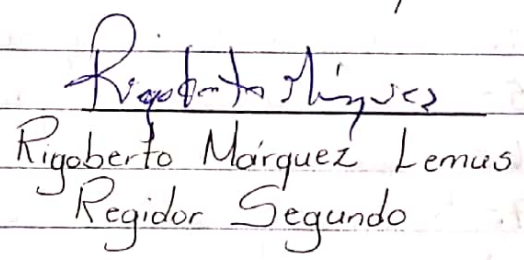 Rigoberto Márquez
Rigoberto Márquez Lemus
Regidor Segundo